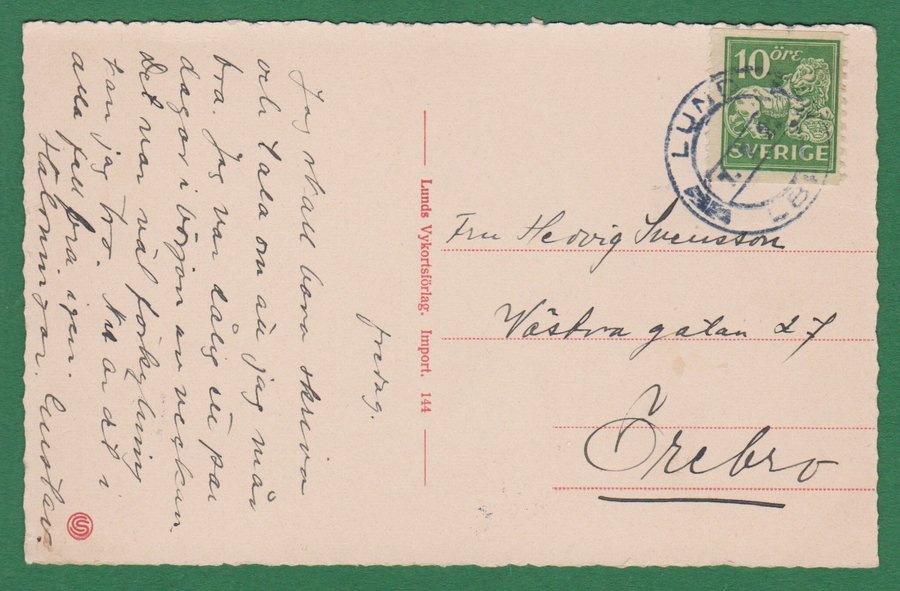 fredag.
Jag skall bara skriva
och tala om att jag mår
bra. Jag var dålig ett par
dagar i början av veckan.
Det var väl förkylning
kan jag tro. Nu är det i
alla fall bra igen.
Hälsningar. Gustav.
Lunds Vykortsförlag. Import. 144
10 ÖRE
SVERIGE
LUND
LBR
Fru Hedvig Svensson
Västra gatan 27
Örebro